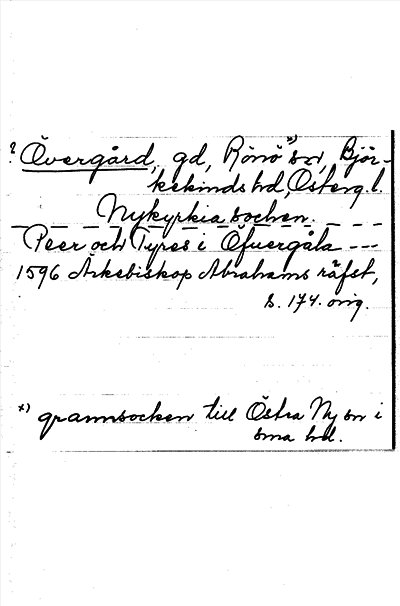 ? Övergård, gd, Rönö*) sn, Björ-
kekinds hd, Österg. l.
Nykyrkia sochen.
Peer och Tyres i Öfuergåla ---
1596 Ärkebiskop Abrahams räfst,
s. 174. orig.
*) grannsocken till Östra Ny sn i
sma hd.